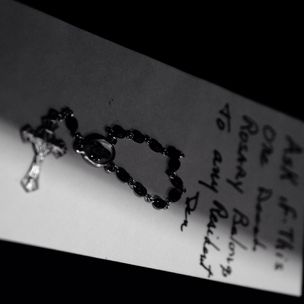 Ask if This
One Decade
Rosary Belongs
To any Resident
Den